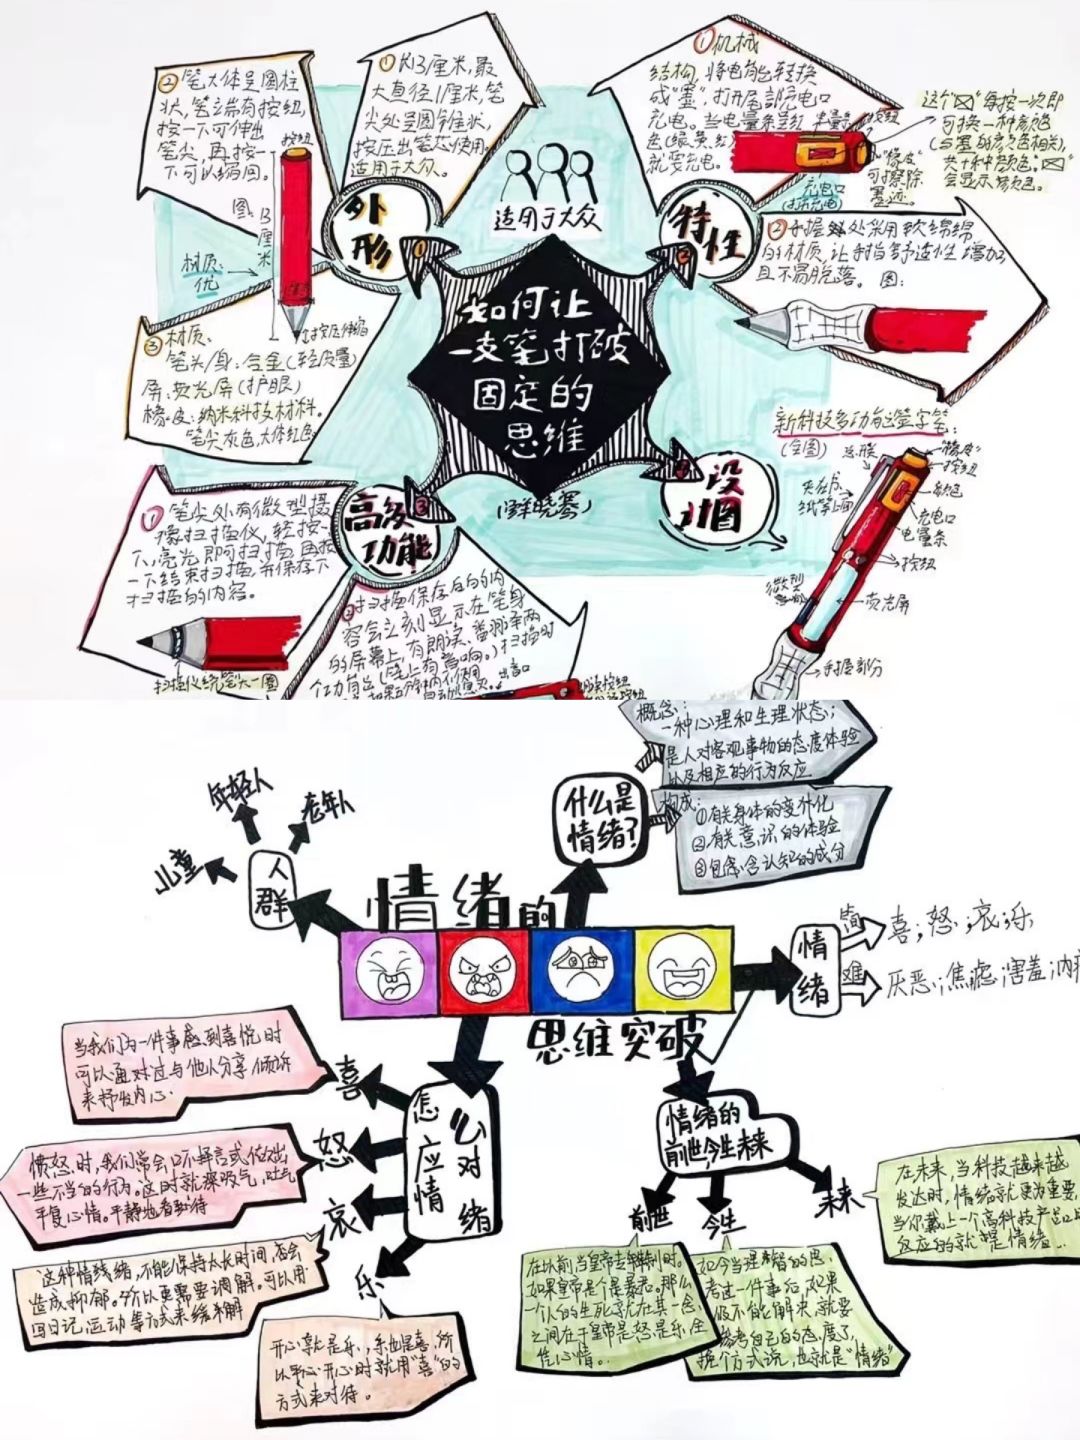 ②笔大体呈圆柱
状,笔端有按钮,
按一下可伸出
笔尖,再按一
下可以缩回。
按钮
图:
13厘米
材质:
优
①长13厘米,最
大直径1厘米,笔
尖处呈圆锥状,
按压出笔芯使用。
适用于大众。
外
形
①
适用于大众
①机械
结构,将电能转换
成“墨”,打开尾部充电口
充电。当电量条呈红
色(绿、黄、红)
就要充电。
按钮
充电口
“橡皮”
可擦除
墨迹。
这个“☒”每按一次即
可换一种颜色
(与墨的颜色相关),
共十种颜色。“☒”
会显示颜色。
特
性
②
②手握处采用软绵绵
的材质,让手指舒适性增加
且不易脱落。 图:
③材质:
笔头/身:合金(轻质量)
屏:荧光屏(护眼)
橡皮:纳米科技材料。
笔尖灰色,大体红色
如何让
一支笔打破
固定的
思维
新科技多功能签字笔:
(全图)
“橡皮”
按钮
颜色
夹在书、
纸等上面
充电口
电量条
按钮
微型
荧光屏
手握部分
高级
功能
③
设
计图
①笔尖处有微型摄
像扫描仪,轻按一
下,亮光即可扫描,再按
一下结束扫描,并保存下
扫描的内容。
扫描仪绕笔尖一圈
②扫描保存后的内
容会立刻显示在笔身
的屏幕上,有朗读、翻译两
个功能(笔上有音响。)扫描时
出音口
概念:
一种心理和生理状态;
是人对客观事物的态度体验
以及相应的行为反应
什么是
情绪?
构成:
①有关身体的变化
②有关意识的体验
③包含认知的成分
年轻人
老年人
儿童
人
群
情绪的
思维突破
情
绪
简
喜;怒;哀;乐
难
厌恶;焦虑;害羞;内
怎么
应对
情绪
喜
当我们为一件事感到喜悦时
可以通过与他人分享、倾诉
来抒发内心.
怒
愤怒时,我们常会口不择言或做出
一些不当的行为。这时就深吸气,吐气
平复心情。平静地看待
哀
这种情绪,不能保持太长时间,否会
造成抑郁。所以更需要调解。可以用
写日记,运动等方式来缓解
乐
开心就是乐,乐也是喜,所
以开心时就用“喜”的
方式来对待。
情绪的
前世,今生,未来
前世
在以前,当皇帝专制时。
如果皇帝是个暴君。那么
一个人的生死就在其一念
之间在于皇帝是怒是乐,全
凭心情。
今生
如今当理智的思
考过一件事后,如果
仍不能解决,就要
思考自己的态度了,
换个方式说,也就是“情绪”
未来
在未来,当科技越来越
发达时,情绪就更为重要,
当你戴上一个高科技产品
反应的就是情绪...